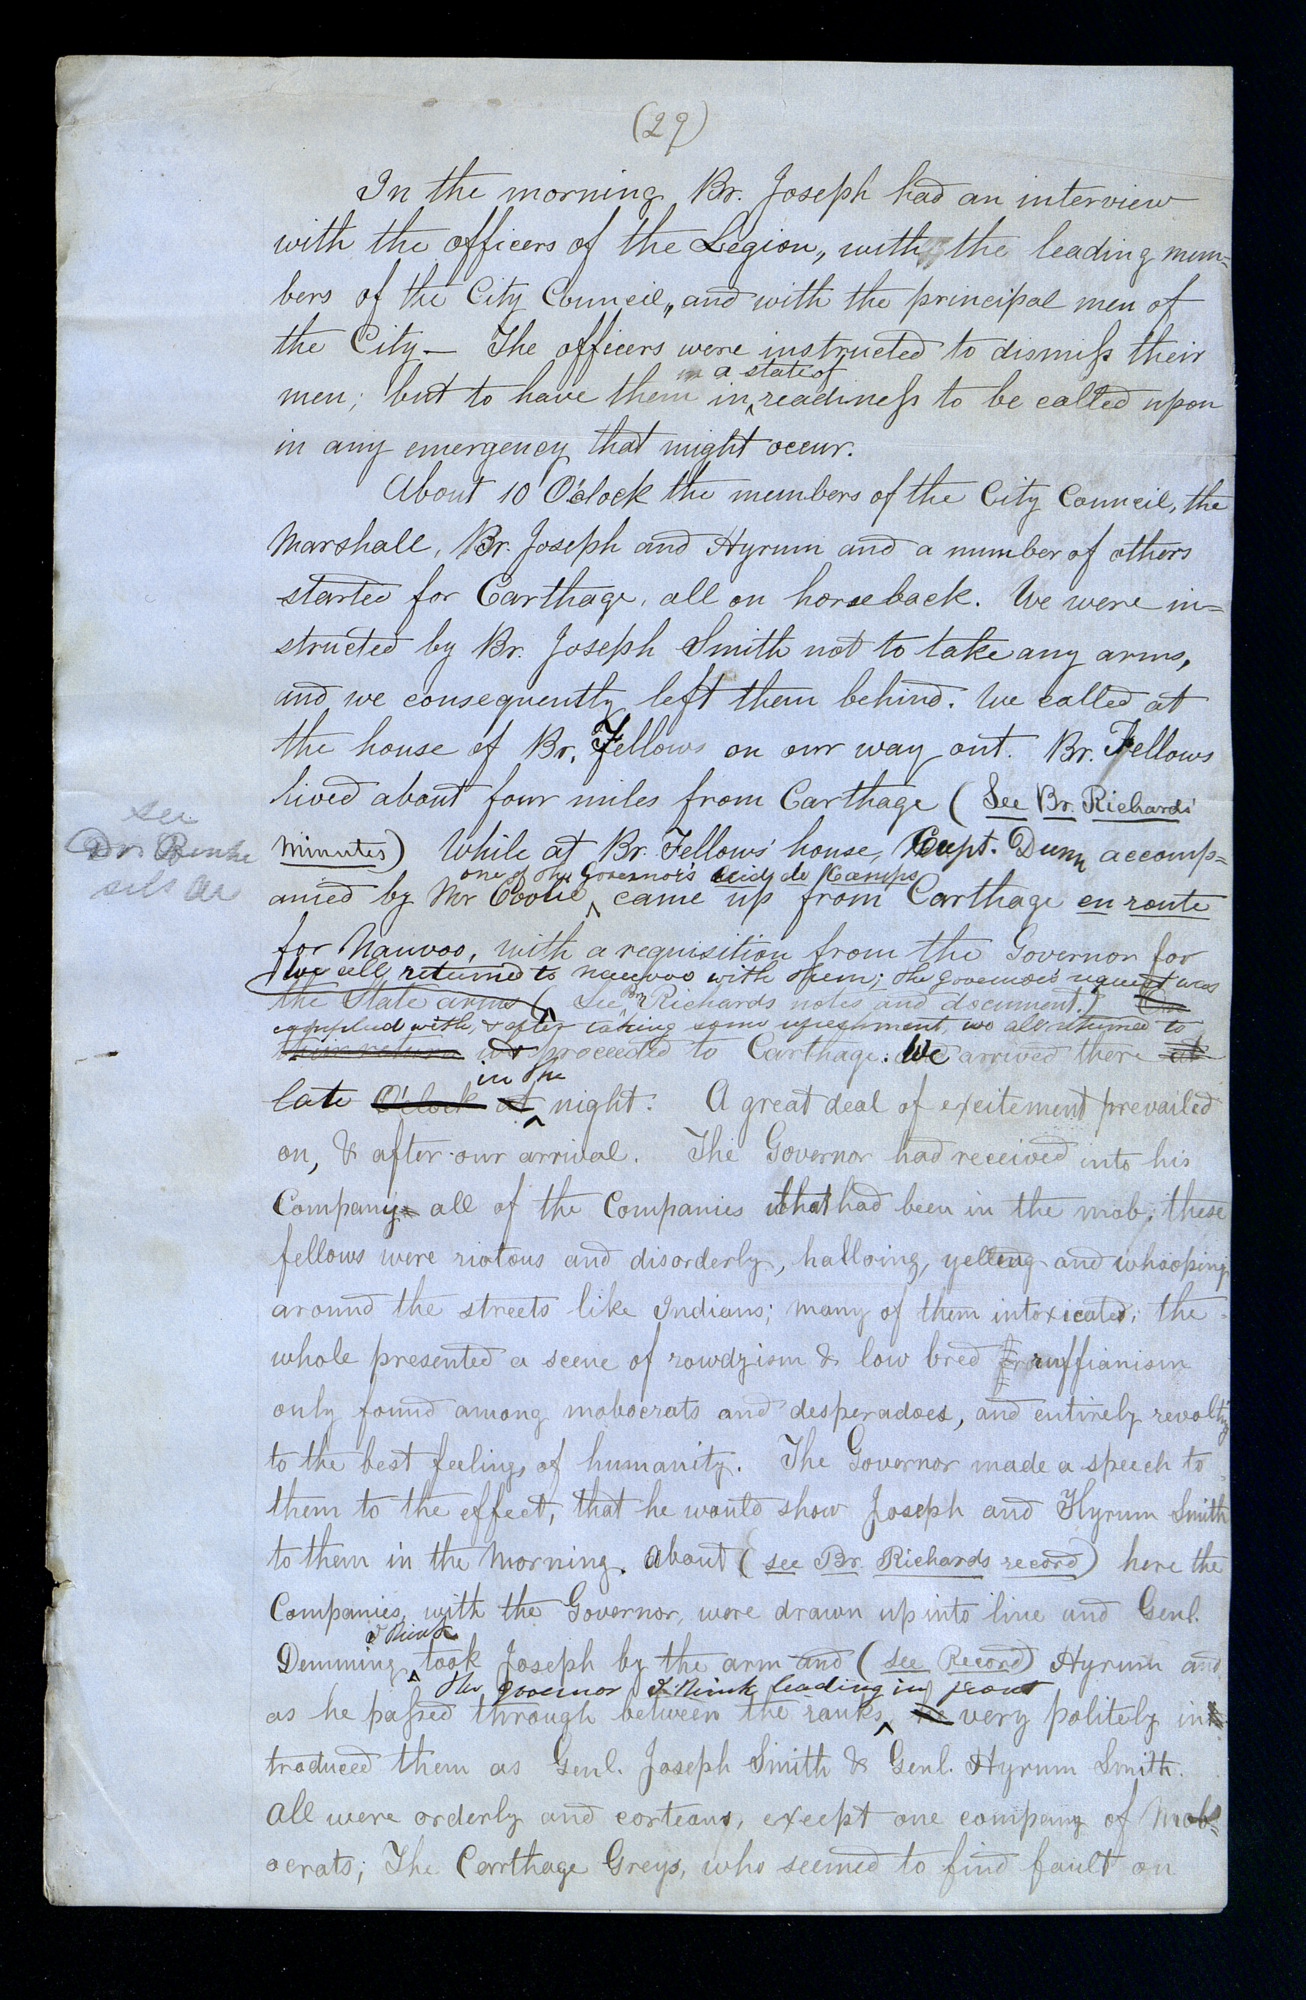 (29)
In the morning Br. Joseph had an interview
with the officers of the Legion, with the leading mem-
bers of the City Council, and with the principal men of
the City— The officers were instructed to dismiss their
a state of
men; but to have them in readiness to be called upon
in any emergency that might occur.
About 10 O'clock the members of the City Council, the
Marshall, Br. Joseph and Hyrum and a number of others
started for Carthage, all on horseback. We were in=
structed by Br. Joseph Smith not to take any arms,
and we consequently left them behind. We called at
the house of Br. Fellows on our way out. Br. Fellows
lived about four miles from Carthage (See Br. Richards'
see
Dr
minutes) While at Br. Fellows' house, Capt. Dunn accomp=
one of the Governor's Aid de Camps
anied by Mr Coolie, came up from Carthage en route
for Nauvoo, with a requisition from the Governor for
we all returned to nauvoo with them; the governor's request was
the State arms (See Br Richards notes and document.)
complied with, & after taking some refreshment, we all returned to
their return we proceeded to Carthage. We arrived there at
in the
late O'clock at night. A great deal of excitement prevailed
on, & after our arrival. The Governor had received into his
Company all of the companies that had been in the mob; these
fellows were riotous and disorderly, halloing, yelling and whooping
around the streets like Indians; many of them intoxicated; the
whole presented a scene of rowdyism & low bred ruffianism
only found among mobocrats and desperadoes, and entirely revolting
to the best feelings of humanity. The Governor made a speech to
them to the effect, that he would show Joseph and Hyrum Smith
to them in the morning. About (see Br. Richards record) here the
Companies, with the Governor, were drawn up into line and Genl.
I think
Demming took Joseph by the arm and (see Record) Hyrum and
the governor I think leading in front
as he passed through between the ranks, he very politely in
troduced them as Genl. Joseph Smith & Genl. Hyrum Smith.
All were orderly and corteous, except one company of Mob=
ocrats; The Carthage Greys, who seemed to find fault on